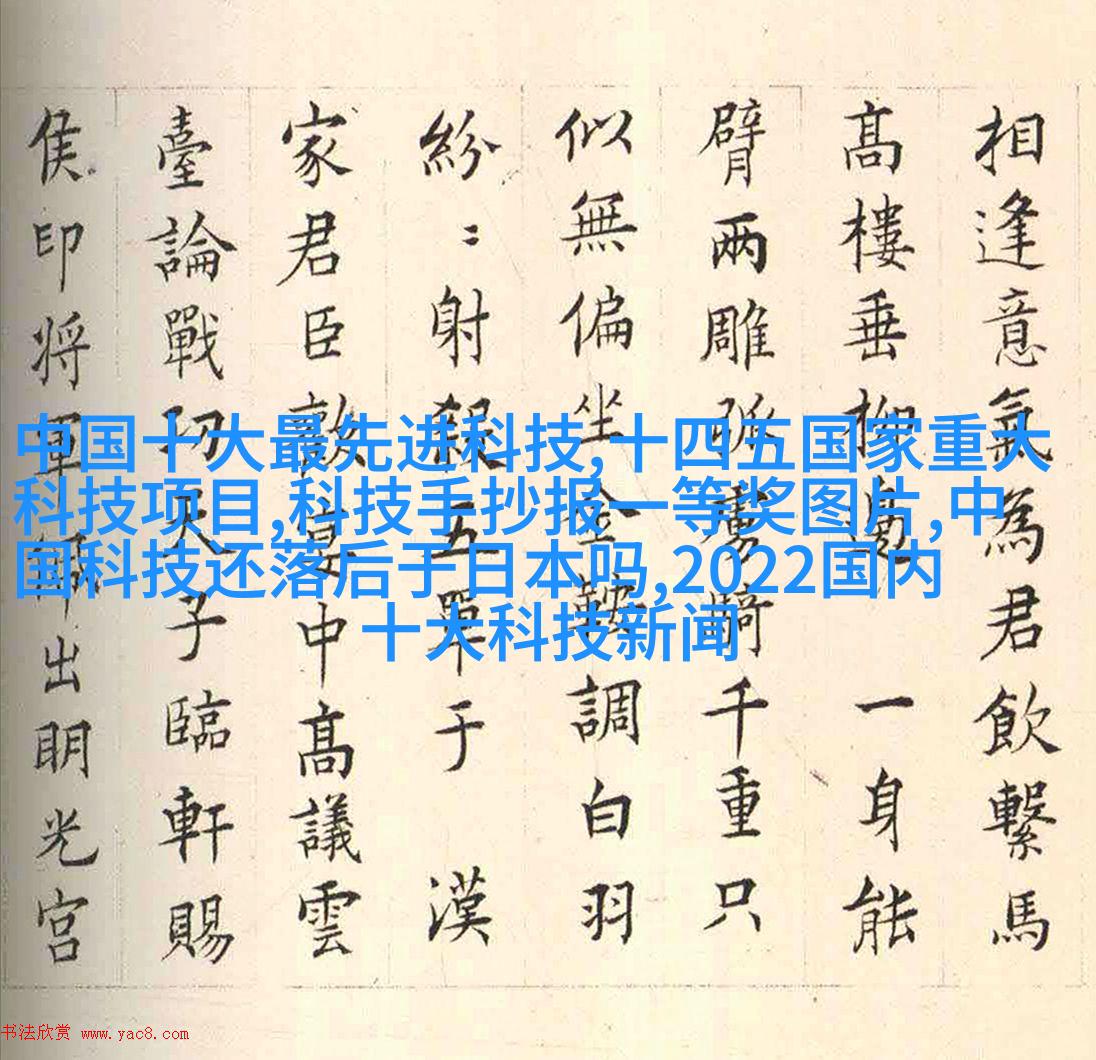 相逢意氣為君飲繫馬
髙樓垂柳邊 一身能
臂兩雕弧虜騎千重只
似無偏坐金鞍調白羽
紛〻射殺五單于 漢
家君臣歡宴中髙議雲
臺論戰功天子臨軒賜
侯印将軍珮出明光宮
中国十大最先进科技,十四五国家重大
科技项目,科技手抄报一等奖图片,中
国科技还落后于日本吗,2022国内
十大科技新闻
书法欣赏 www.yac8.com